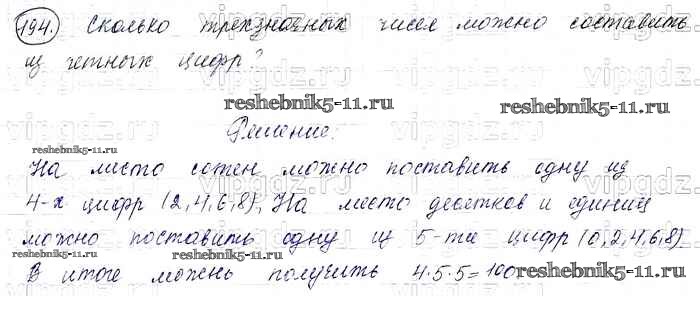 194. Сколько трехзначных чисел можно составить
из четных цифр?
vipgdz.ru vipgdz.ru vipgdz.ru
reshebnik5-11.ru reshebnik5-11.ru
Решение:
reshebnik5-11.ru
На место сотен можно поставить одну из
4-х цифр (2,4,6,8). На место десятков и единиц
можно поставить одну из 5-ти цифр (0,2,4,6,8)
reshebnik5-11.ru
В итоге можем получить 4·5·5=100
reshebnik5-11.ru